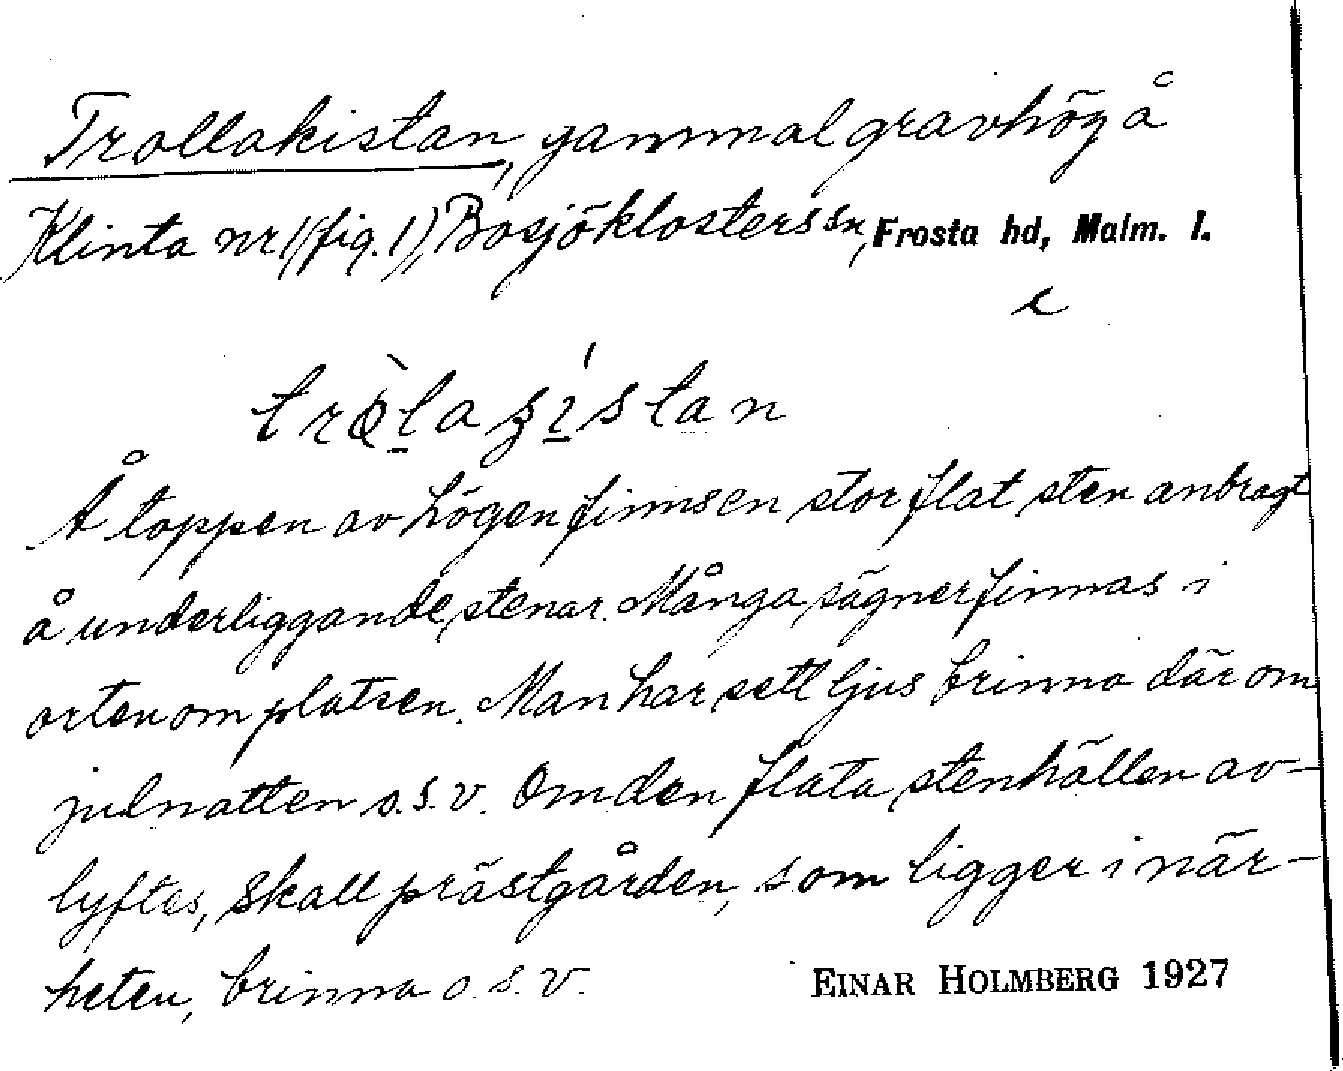 Trollakistan, gammal gravhög å
Klinta nr 1 (fig. 1), Bosjöklosters sn, Frosta hd, Malm. l.
Å toppen av högen finns en stor flat sten anbragt
å underliggande stenar. Många sägner finnas i
orten om platsen. Man har sett ljus brinna där om
julnatten o.s.v. Om den flata stenhällen av-
lyftes, skall prästgården, som ligger i när-
heten, brinna o.s.v.
EINAR HOLMBERG 1927